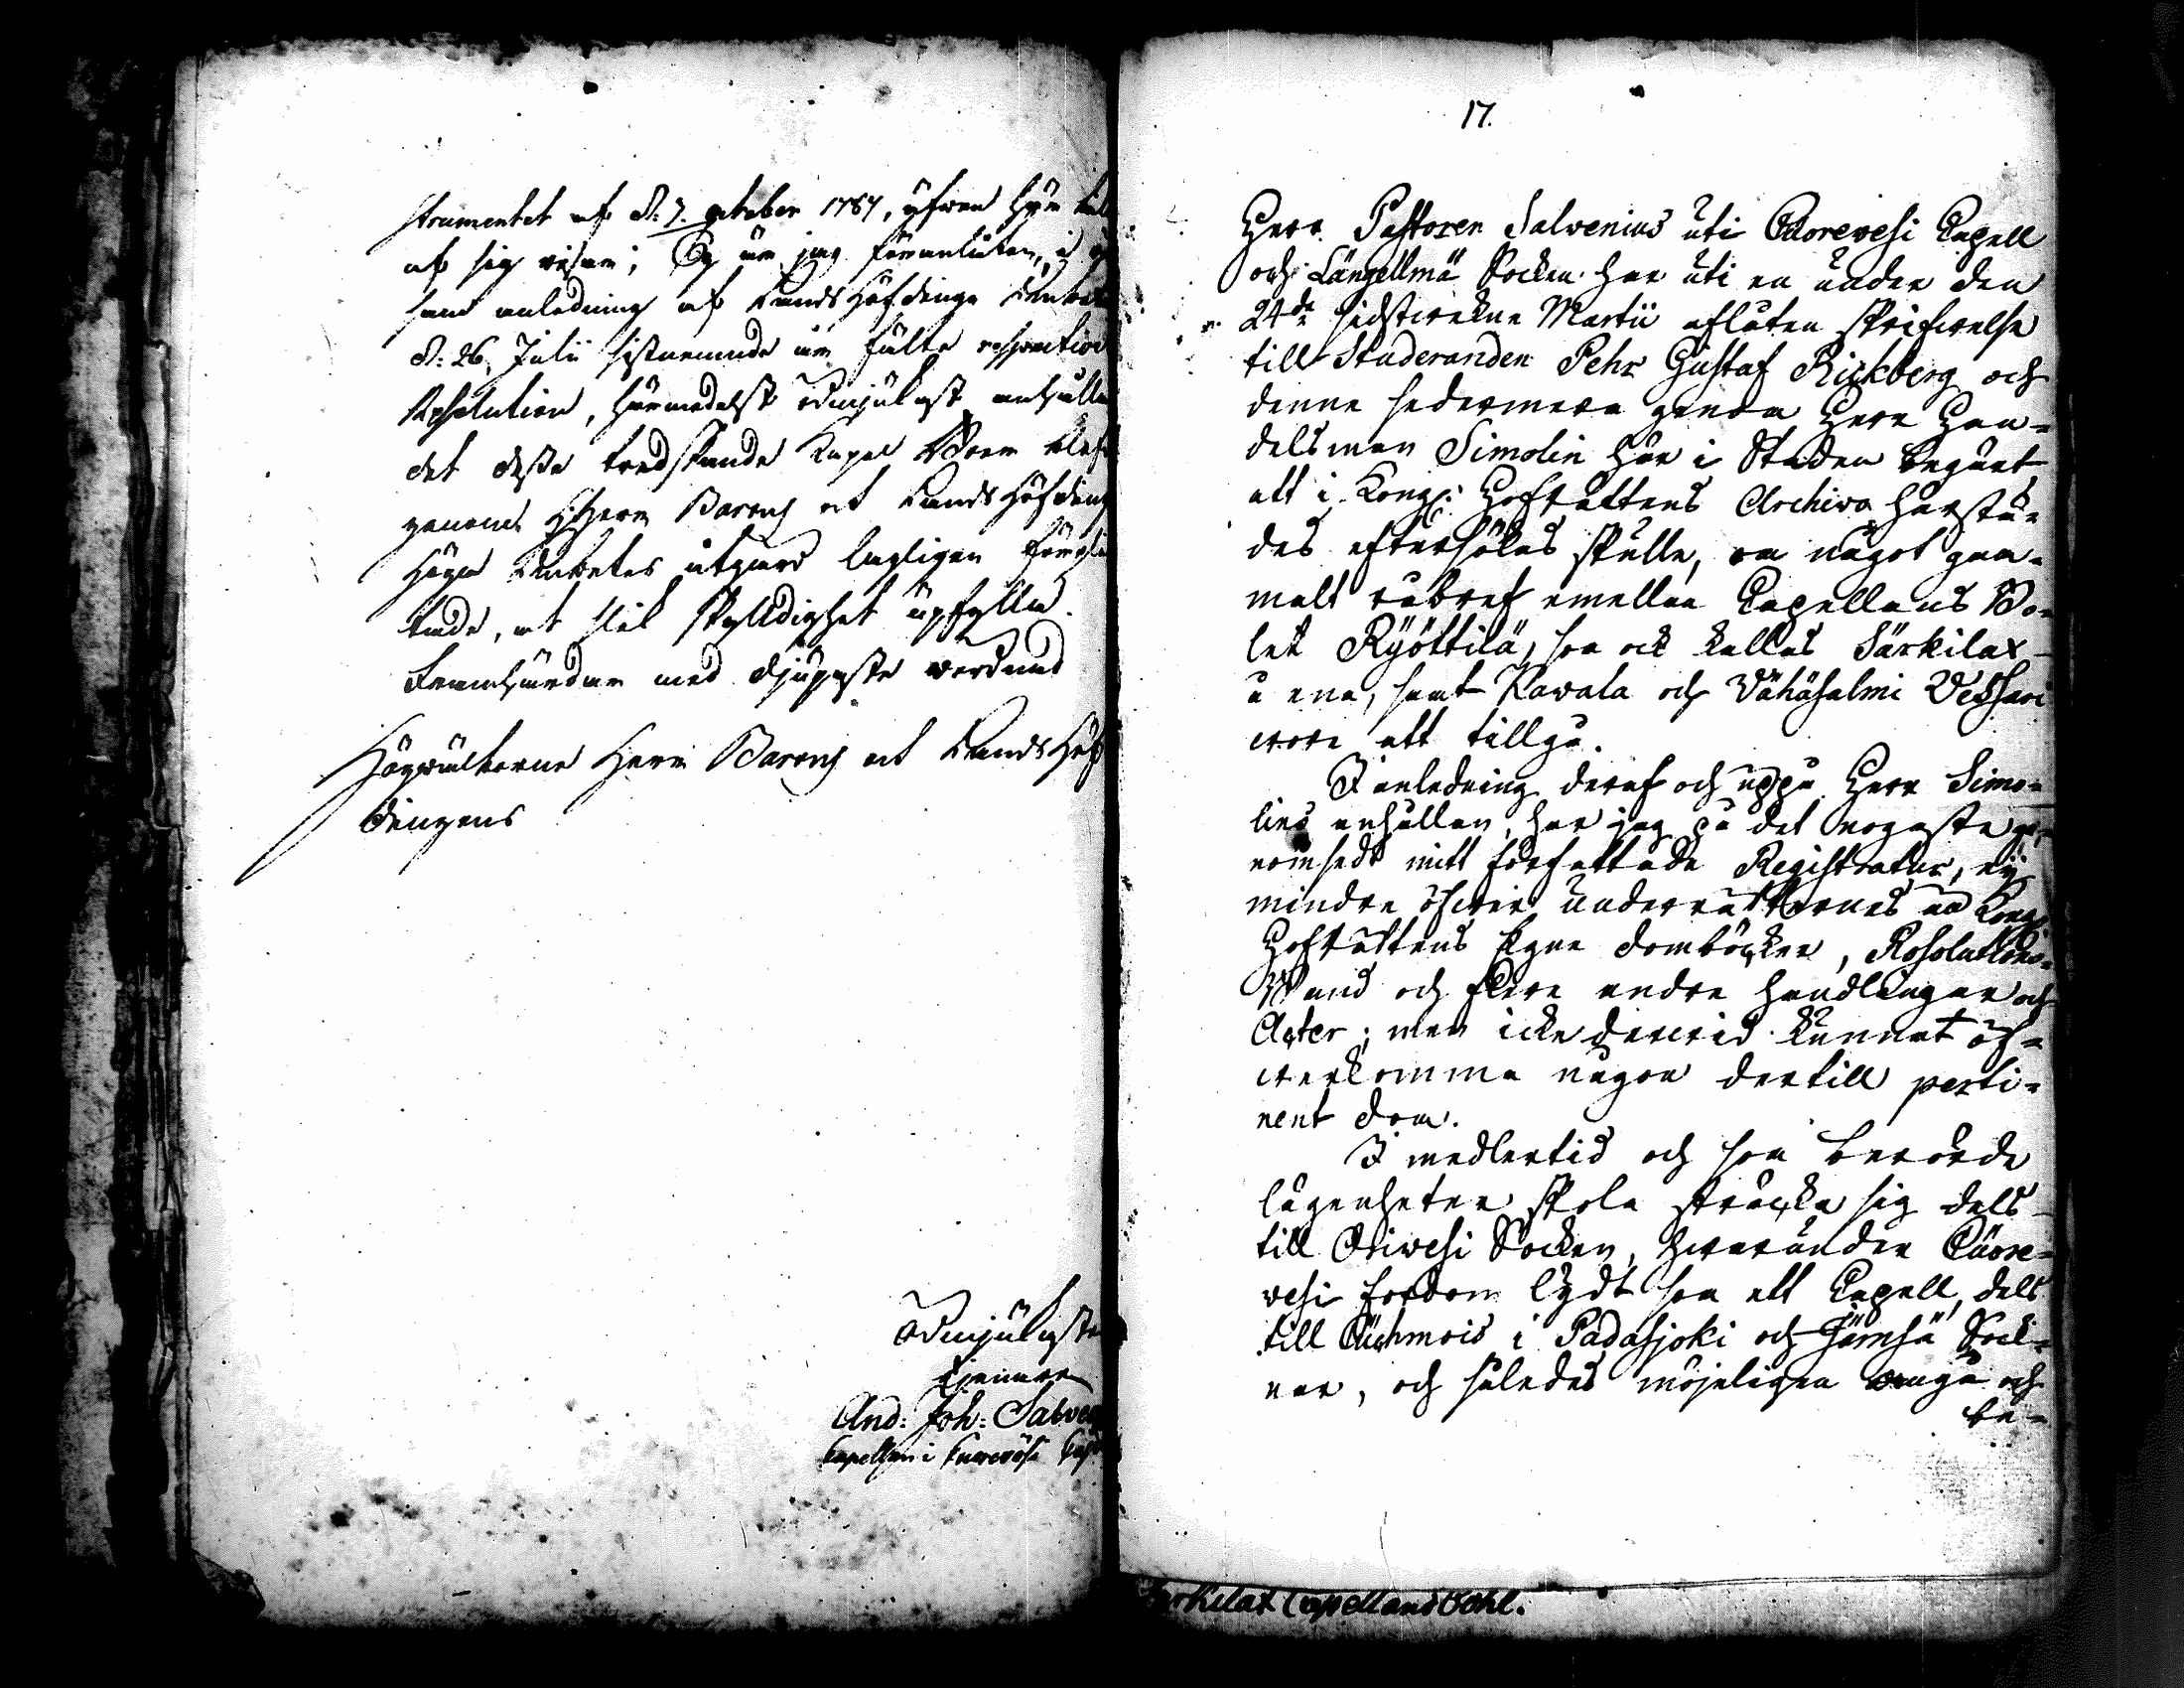 strumentet af d: 7. october 1767, äfwen
af sig wisar; Ty är jag förանlåten, i
samt anledning af Lands Höfdinge Embetets
d: 26. Julii sistnemnde år fälte respective
Resolution, härmedelst ödmjukast anhålla
det desse tredskande Kapel Boer
genom Herr Barons at Lands Höfding
höga Embetes utgärd lageligen
tade, at slik skyldighet upfylla.
Framhärdar med djupaste wördnad
Högwälborne Herr Barons at Lands Höf
dingens
Ödmjukaste
tjenare
And: Joh: Salven
Capellan i Kuorevesi
17.
Herr Pastoren Salvenius uti Cuorevesi Capell
och Längelmä Socken har uti en under den
24de sidstwekne Martii aflåten skrifwelse
till Studeranden Pehr Gustaf Rickberg och
denne sedermera genom Herr Han-
delsman Simolin här i Staden begärt
att i Kongl: Hofrättens Archivo harstä-
des eftersökas skulle, om något gam-
malt råbref emellan Capellans Bo-
let Ryöttilä, som ock kallas Särkilax
å ena, samt Kavala och Vähäsalmi
wore att tillgå.
I anledning deraf och uppå Herr Simo-
lins anhållan, har jag på det nogaste ge-
nomsedt mitt författade Registratur, ej
mindre öfwer underrätternes än Kongl:
Hofrättens Egne domböcker, Resolutions-
Band och flere andre handlingar och
Acter; men icke derwid kunnat öf-
werkomma någon dertill perti-
nent dom.
I medlertid och som berörde
lägenheter skola sträcka sig dels
till Oriwesi Socken, hwarunder Cuore-
vesi fordom lydt som ett Capell, dels
till Cuhmois i Padasjoki och Jämsä Sock-
nar, och således möjeligen och
be-
Särkilax Capellansbohl.